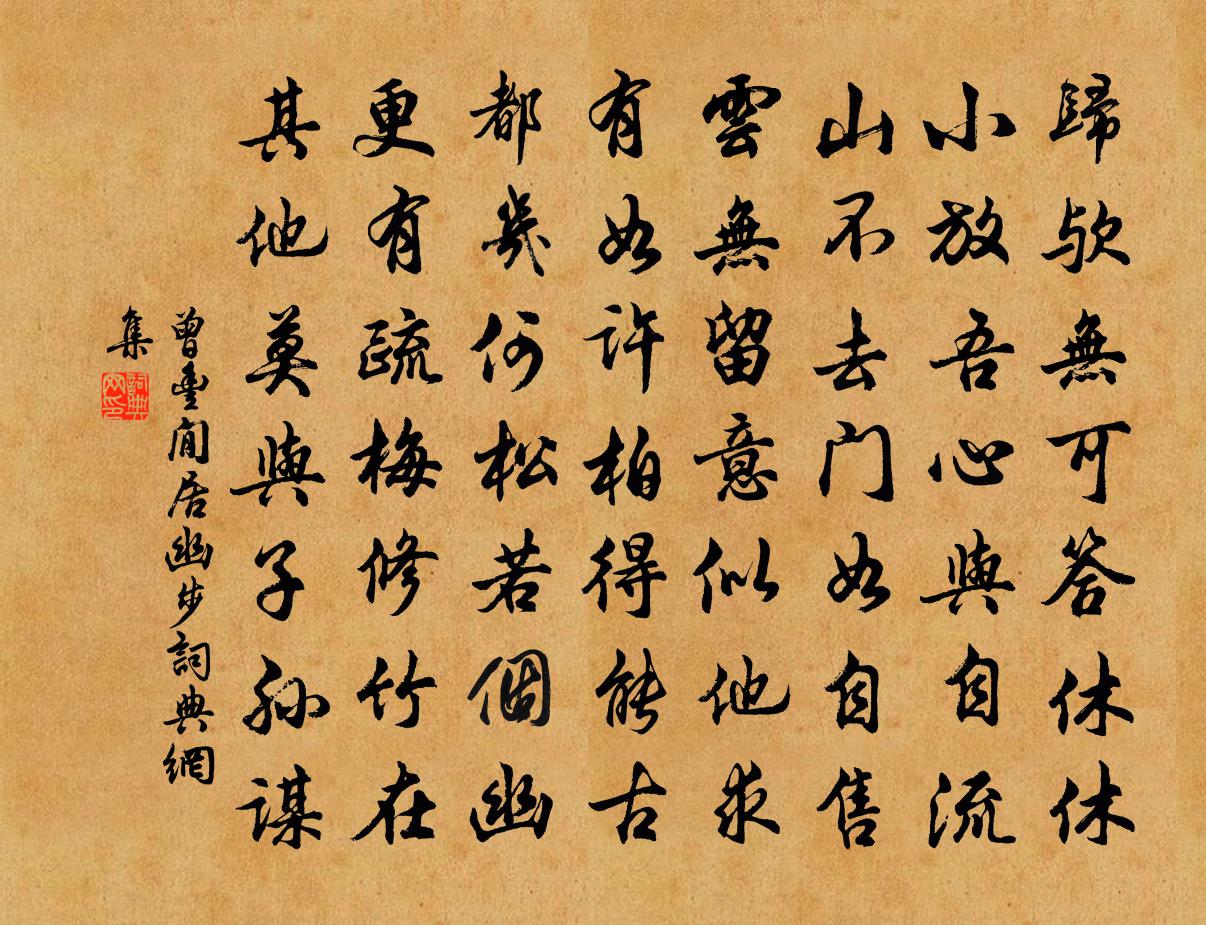 歸歟無可答休休
小放吾心與自流
山不去門如自售
雲無留意似他求
有如許柏得能古
都幾何松若個幽
更有疏梅修竹在
其他莫與子孫謀
曾豐閒居幽步詞典網
集
詞典
网印